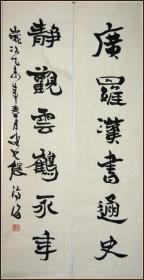 廣羅漢書通史
靜觀雲鶴永年
歲次乙未年春月